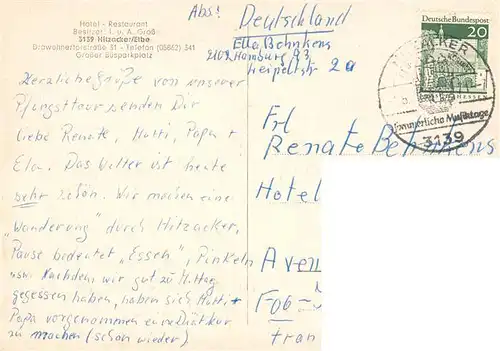 Hotel - Restaurant
Besitzer: I. u. A. Groß
3139 Hitzacker/Elbe
Drawehnertorstraße 31 - Telefon (05862) 341
Großer Busparkplatz
Herzliche Grüße von unserer
Pfingsttour senden Dir
liebe Renate, Mutti, Papa +
Ela. Das Wetter ist heute
sehr schön. Wir machen eine
„Wanderung" durch Hitzacker,
Pause bedeutet „Essen", Pinkeln
usw. Nachdem wir gut zu Mittag
gegessen haben, haben sich Mutti +
Papa vorgenommen eine
zu machen (schon wieder)
Abs: Deutschland
Ella Behnkens
2102 Hamburg 93
2a
Deutsche Bundespost
20
HESSEN
HITZACKER
Sommerliche Musiktage
3139
Frl
Renate Behnkens
Hotel
Aven
Fran